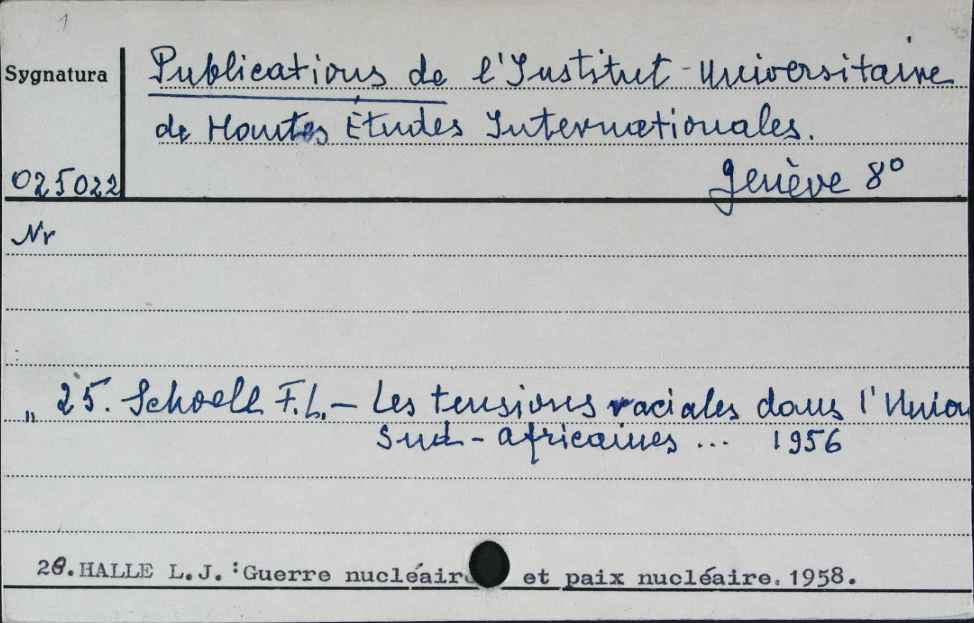 1
Sygnatura
Publications de l'Institut Universitaire
de Hautes Études Internationales.
025022
Genève 8°
Nr
" 25. Schoell F.L. – Les tensions raciales dans l'Union
sud-africaines ... 1956
28. HALLE L.J.: Guerre nucléair et paix nucléaire. 1958.